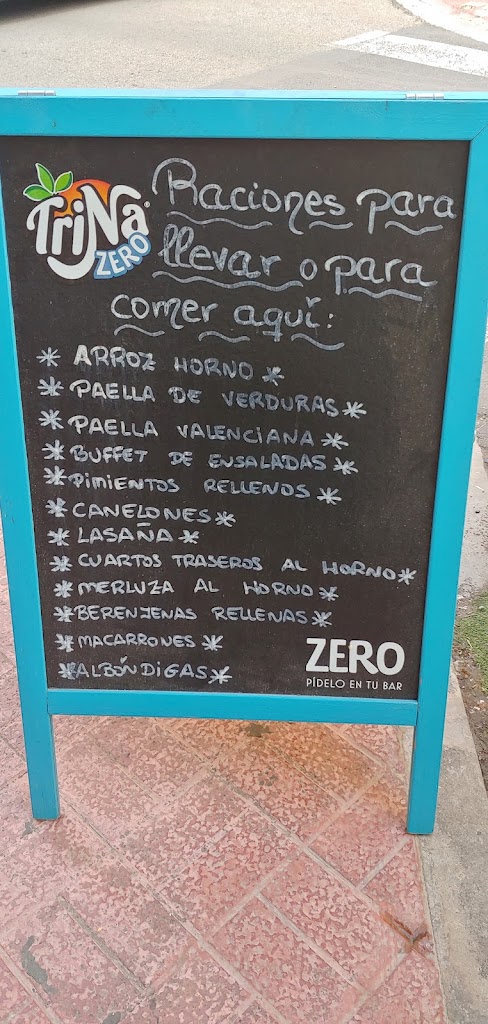 TriNa
ZERO
Raciones para
llevar o para
comer aquí:
* ARROZ HORNO *
* PAELLA DE VERDURAS *
* PAELLA VALENCIANA *
* BUFFET DE ENSALADAS *
* PIMIENTOS RELLENOS *
* CANELONES *
* LASAÑA *
* CUARTOS TRASEROS AL HORNO *
* MERLUZA AL HORNO *
* BERENJENAS RELLENAS *
* MACARRONES *
* ALBÓNDIGAS *
ZERO
PÍDELO EN TU BAR